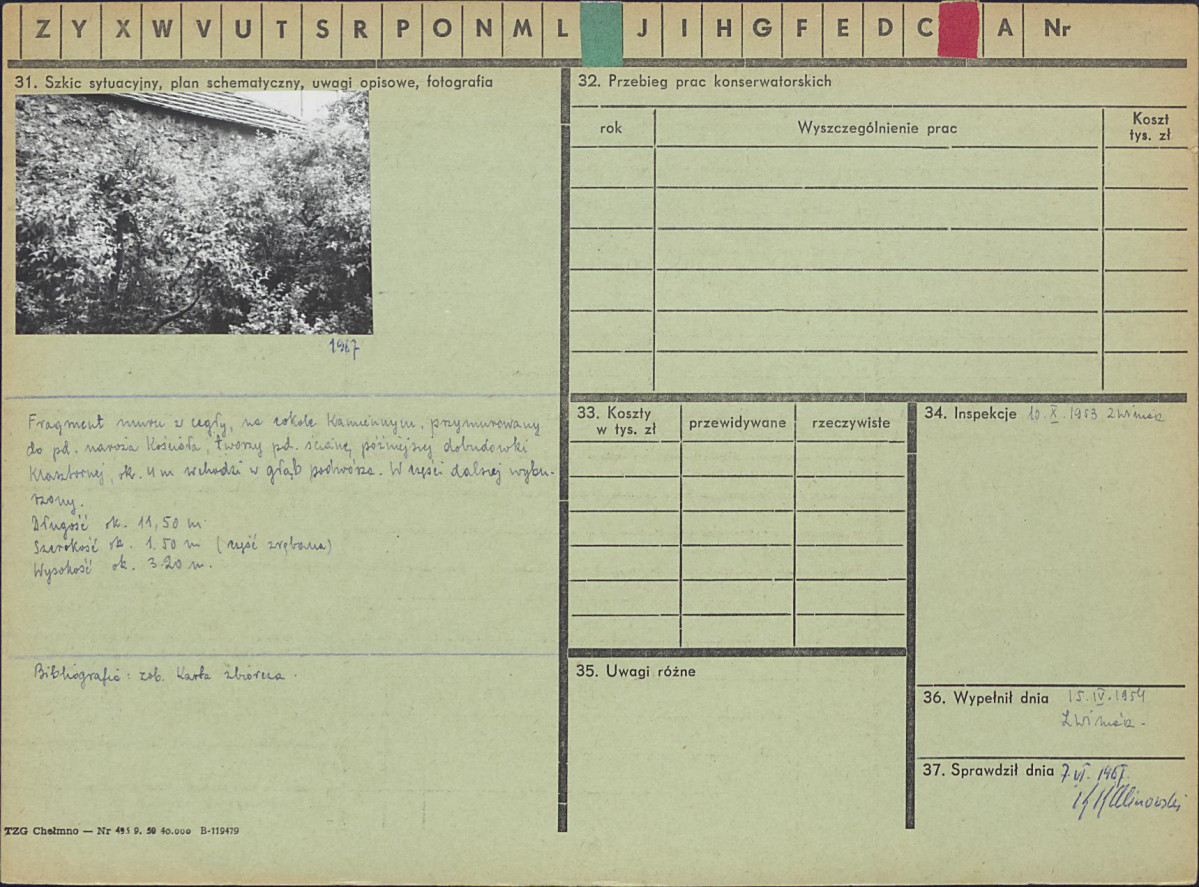 Z Y X W V U T S R P O N M L J I H G F E D C A Nr
31. Szkic sytuacyjny, plan schematyczny, uwagi opisowe, fotografia
1967
Fragment muru z cegły, na cokole kamiennym, przymurowany
do pd. naroża Kościoła, tworzy pd. ścianę późniejszej dobudówki
Klasztornej, ok. 4 m wchodzi w głąb podwórza. W części dalszej wybu-
rzony.
Długość ok. 11,50 m
Szerokość ok. 1.50 m (część zrębana)
Wysokość ok. 3.20 m.
Bibliografia: zob. Karta zbiorcza.
TZG Chełmno — Nr 9. 59 40.000 B-119479
32. Przebieg prac konserwatorskich
rok Wyszczególnienie prac Koszt
tys. zł
33. Koszty
w tys. zł przewidywane rzeczywiste
34. Inspekcje 10.X.1953
35. Uwagi różne
36. Wypełnił dnia 15.IV.1954
37. Sprawdził dnia 7.VI.1967.